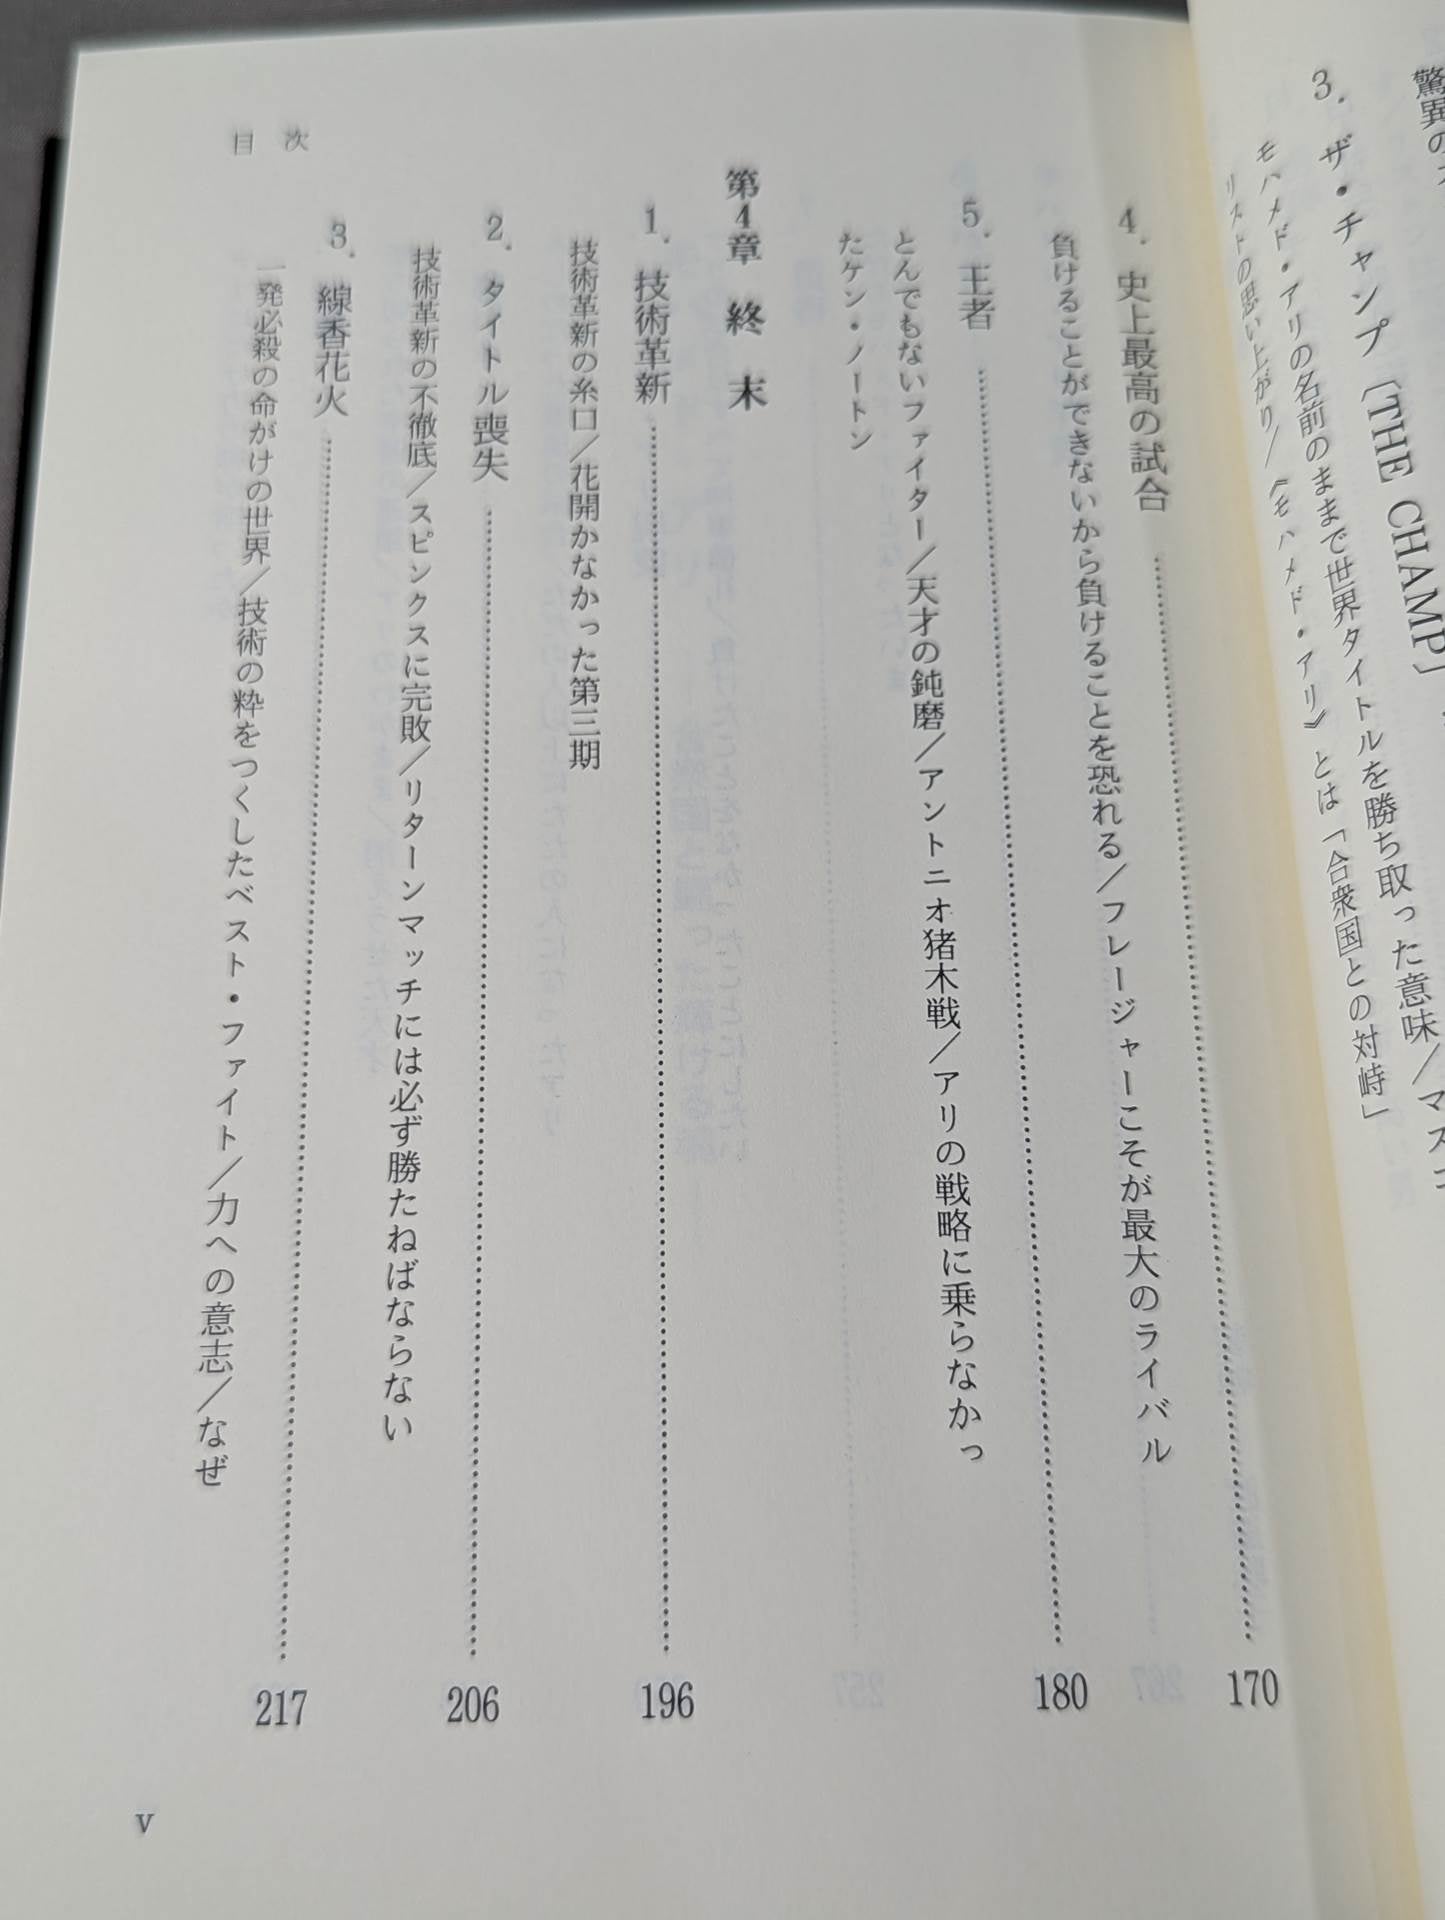 3. ザ・チャンプ〔THE CHAMP〕
モハメド・アリの名前のままで世界タイトルを勝ち取った意味/マスコ
リストの思い上がり/《モハメド・アリ》とは「合衆国との対峙」
目 次
4. 史上最高の試合……170
負けることができないから負けることを恐れる/フレージャーこそが最大のライバル
5. 王者……180
とんでもないファイター/天才の鈍磨/アントニオ猪木戦/アリの戦略に乗らなかっ
たケン・ノートン
第4章 終 末
1. 技術革新……196
技術革新の糸口/花開かなかった第三期
2. タイトル喪失……206
技術革新の不徹底/スピンクスに完敗/リターンマッチには必ず勝たねばならない
3. 線香花火……217
一発必殺の命がけの世界/技術の粋をつくしたベスト・ファイト/力への意志/なぜ
v